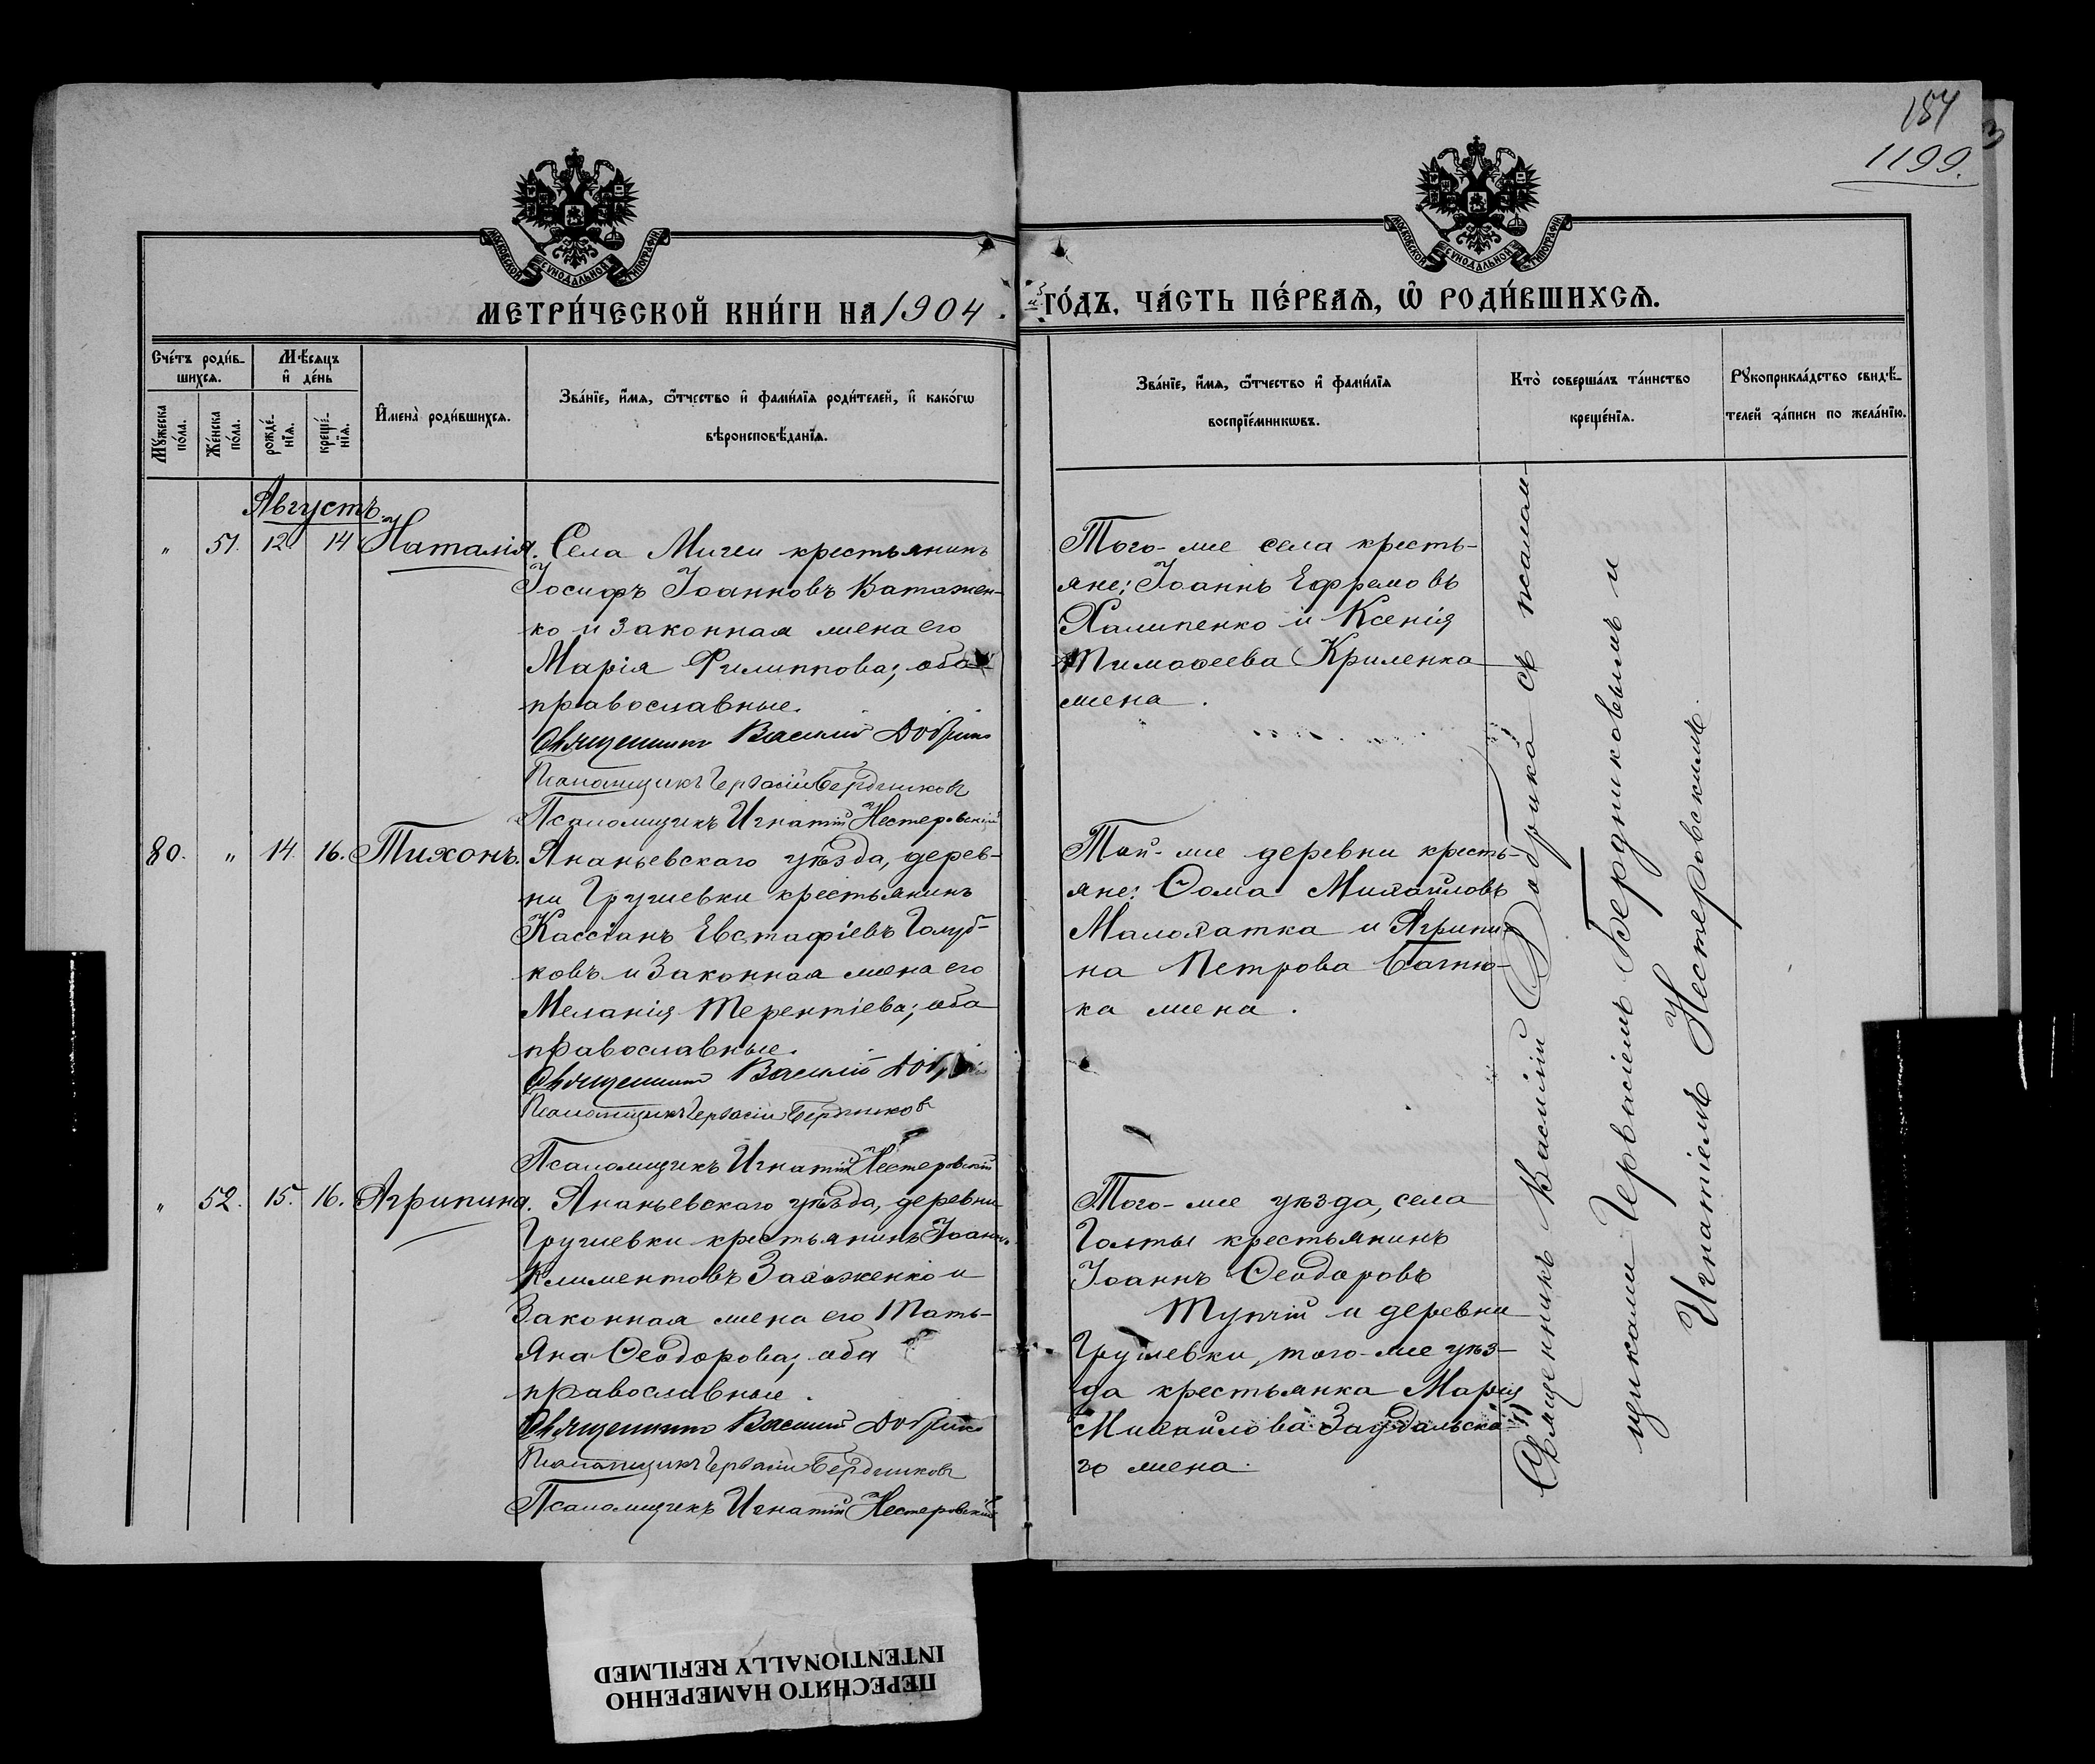 184
1199.
МОСКОВСКОЙ СУНОДАЛЬНОЙ ТИПОГРАФІИ
МОСКОВСКОЙ СУНОДАЛЬНОЙ ТИПОГРАФІИ
МЕТРИ́ЧЕСКОЙ КНИ́ГИ НА 1904 ГО́ДЪ, ЧА́СТЬ ПЕ́РВАѦ, Ѽ РОДИ́ВШИХСѦ.
Сче́тъ роди́в-
шихсѧ.
Мꙋ́жеска по́ла.
Же́нска по́ла.
Мѣ́сѧцъ
и҆ де́нь
рожде́-
нїѧ.
креще́-
нїѧ.
И҆мена̀ роди́вшихсѧ.
Зва́нїе, и҆́мѧ, ѻ҆́тчество и҆ фами́лїѧ роди́телей, и҆ како́гѡ
вѣроисповѣ́данїѧ.
Зва́нїе, и҆́мѧ, ѻ҆́тчество и҆ фами́лїѧ
воспрїе́мникѡвъ.
Кто̀ соверша́лъ та́инство
креще́нїѧ.
Рꙋкоприкла́дство свидѣ́-
телей за́писи по жела́нїю.
Августъ.
" 51. 12. 14 Наталія.
Села Мигеи крестьянинъ
Іосифъ Іоанновъ Ватажен-
ко и законная жена его
Марія Филиппова; оба
православные.
Священникъ Василій Добрика
Псаломщикъ Гервасій Бердниковъ
Псаломщикъ Игнатій Нестеровскій
Того-же села кресть-
яне: Іоаннъ Ефремовъ
Халипенко и Ксенія
Тимоѳеева Криленка
жена.
80. " 14. 16. Тихонъ.
Ананьевскаго уѣзда, дерев-
ни Грушевки крестьянинъ
Кассіанъ Евстафіевъ Голуб-
ковъ и законная жена его
Меланія Терентіева; оба
православные.
Священникъ Василій
Псаломщикъ Гервасій Бердниковъ
Псаломщикъ Игнатій Нестеровскій
Той-же деревни кресть-
яне: Ѳома Михаиловъ
Малохатка и Агрипи-
на Петрова Багню-
ка жена.
" 52. 15. 16. Агрипина.
Ананьевскаго уѣзда, деревни
Грушевки крестьянинъ Іоаннъ
Климентовъ и
законная жена его Тать-
яна Ѳеодорова; оба
православные.
Священникъ Василій Добрика
Псаломщикъ Гервасій Бердниковъ
Псаломщикъ Игнатій Нестеровскій
Того-же уѣзда, села
Голты крестьянинъ
Іоаннъ Ѳеодоровъ
Тупчій и деревни
Грушевки, того-же уѣз-
да крестьянка Марія
Михаилова Заудальска-
го жена.
Священникъ Василій Добрика съ псалом-
щиками Гервасіемъ Бердниковымъ и
Игнатіемъ Нестеровскимъ.
ПЕРЕСНЯТО НАМЕРЕННО
INTENTIONALLY REFILMED